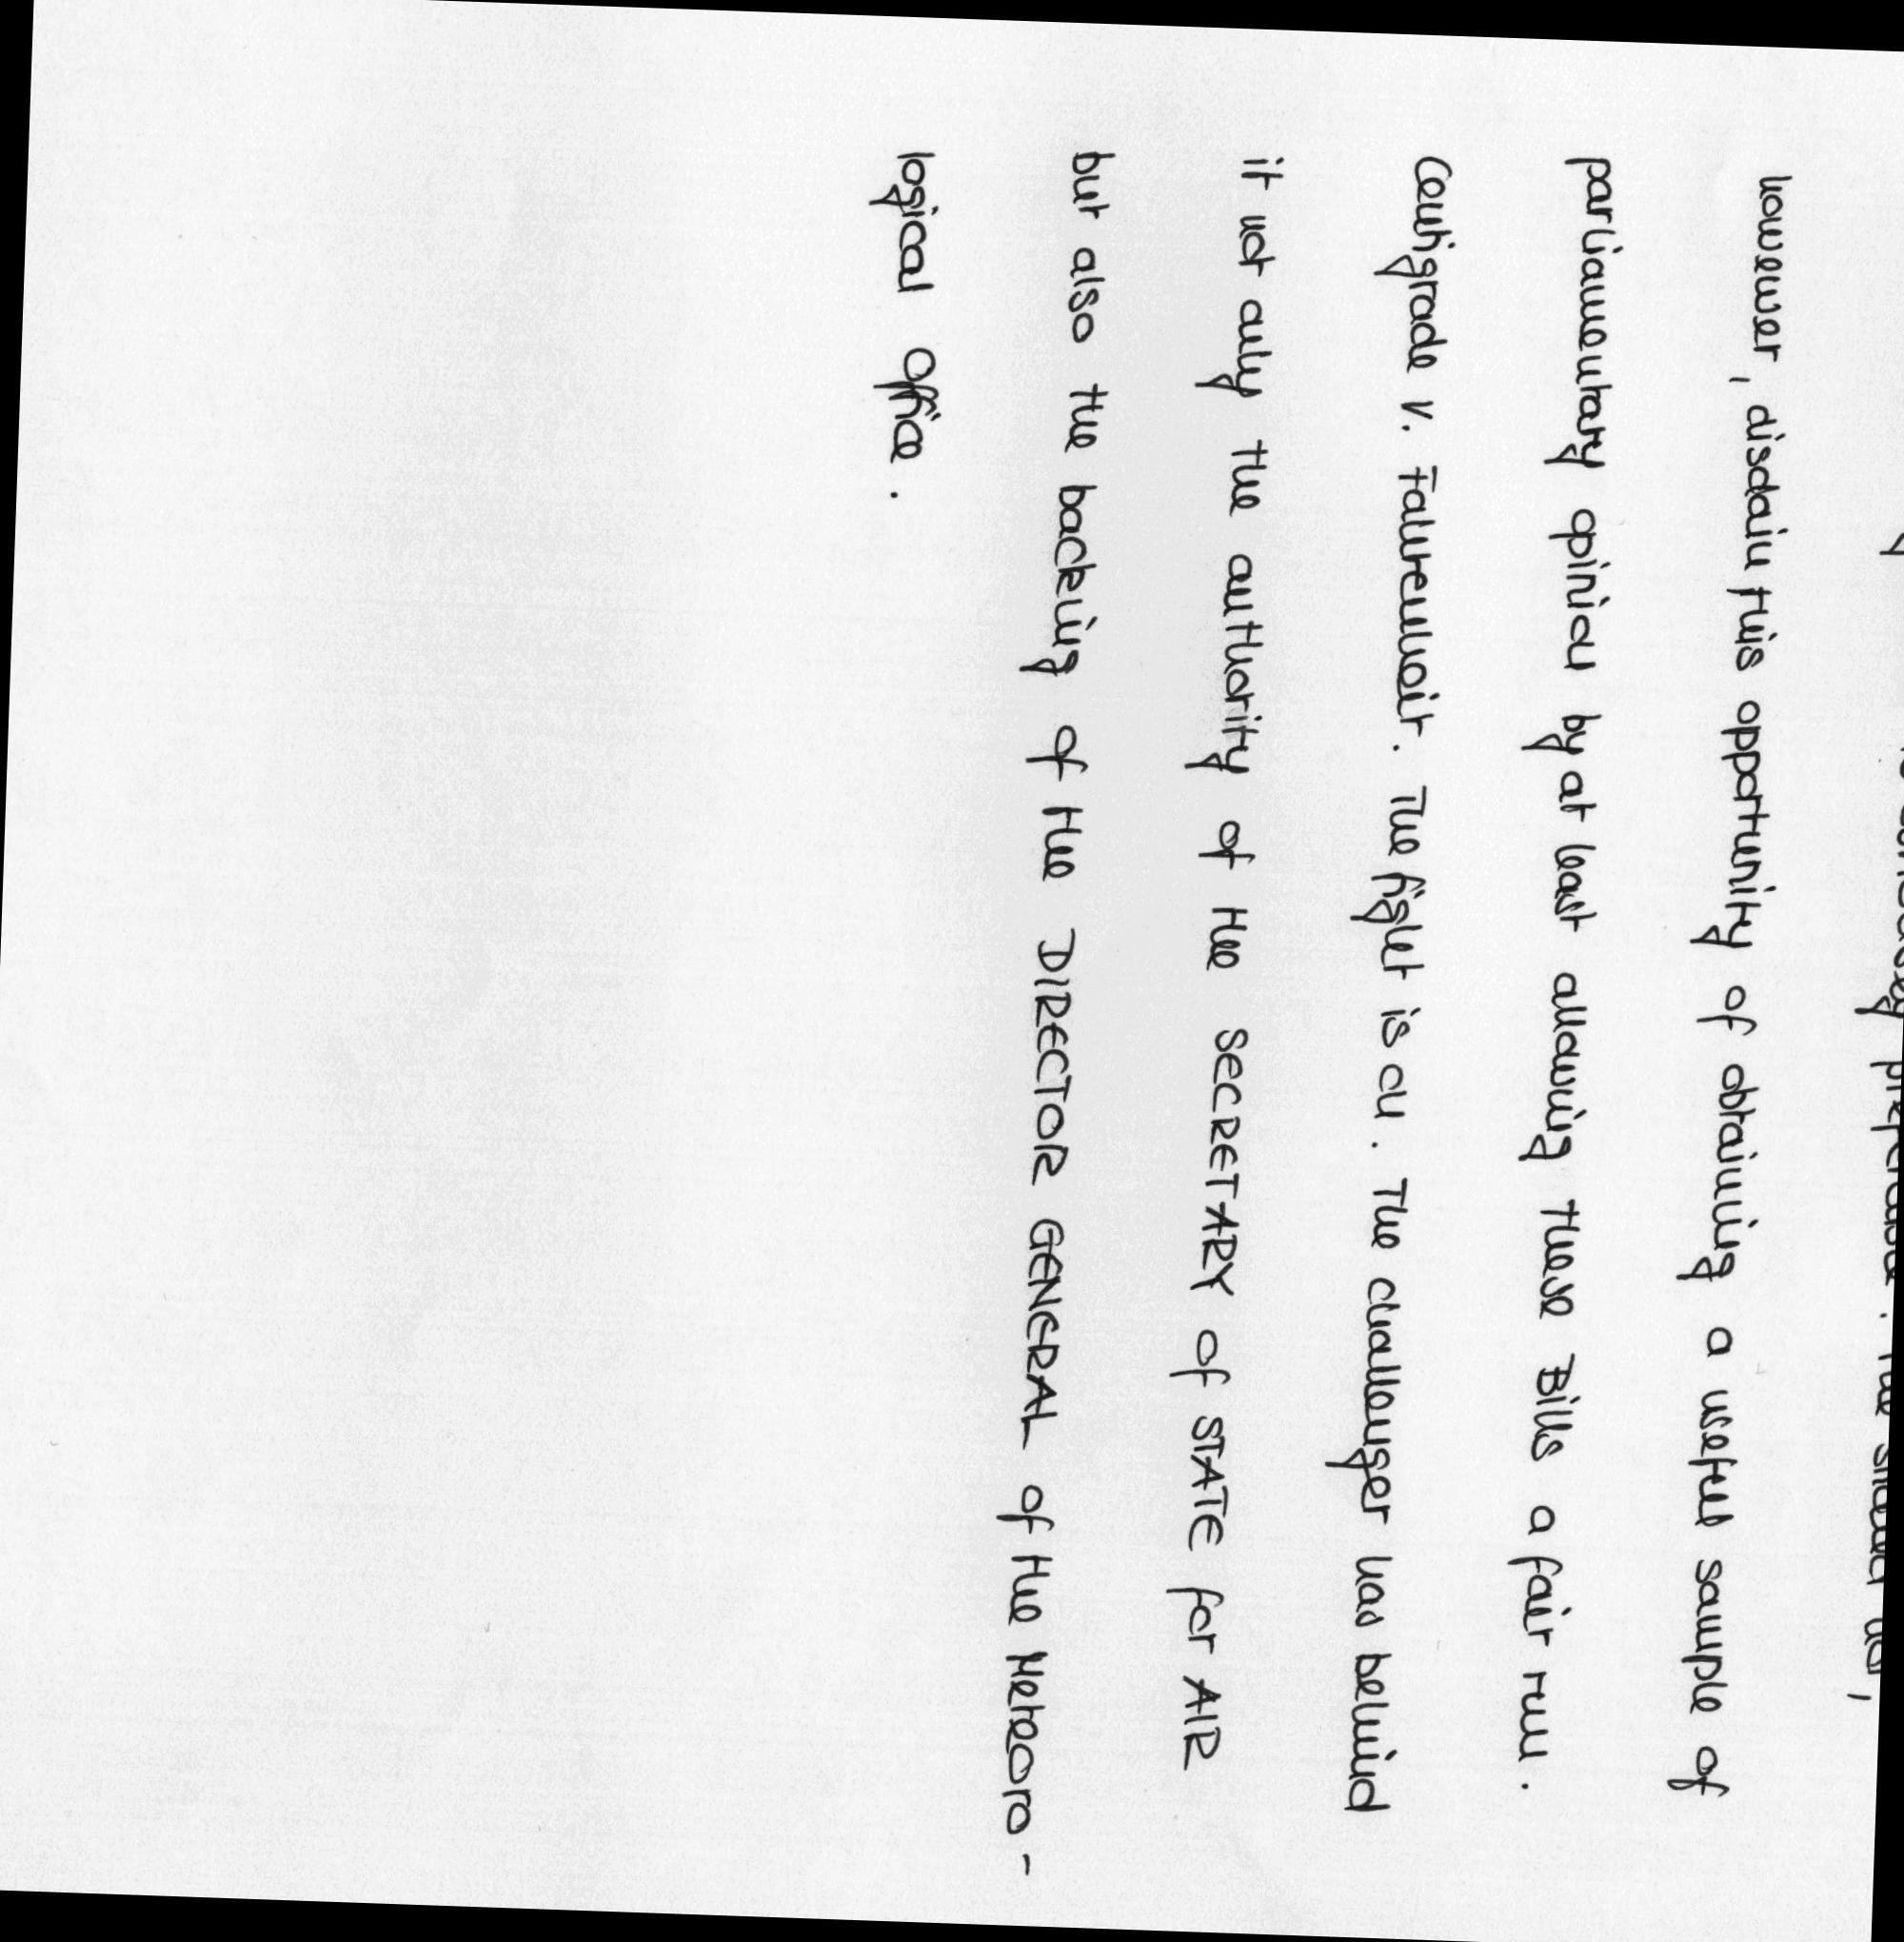 however, disdain this opportunity of obtaining a useful sample of
parliamentary opinion by at least allowing these Bills a fair run.
Centigrade v. Fahrenheit. The fight is on. The challenger has behind
it not only the authority of the SECRETARY of STATE for AIR
but also the backing of the DIRECTOR GENERAL of the Meteoro-
logical Office.